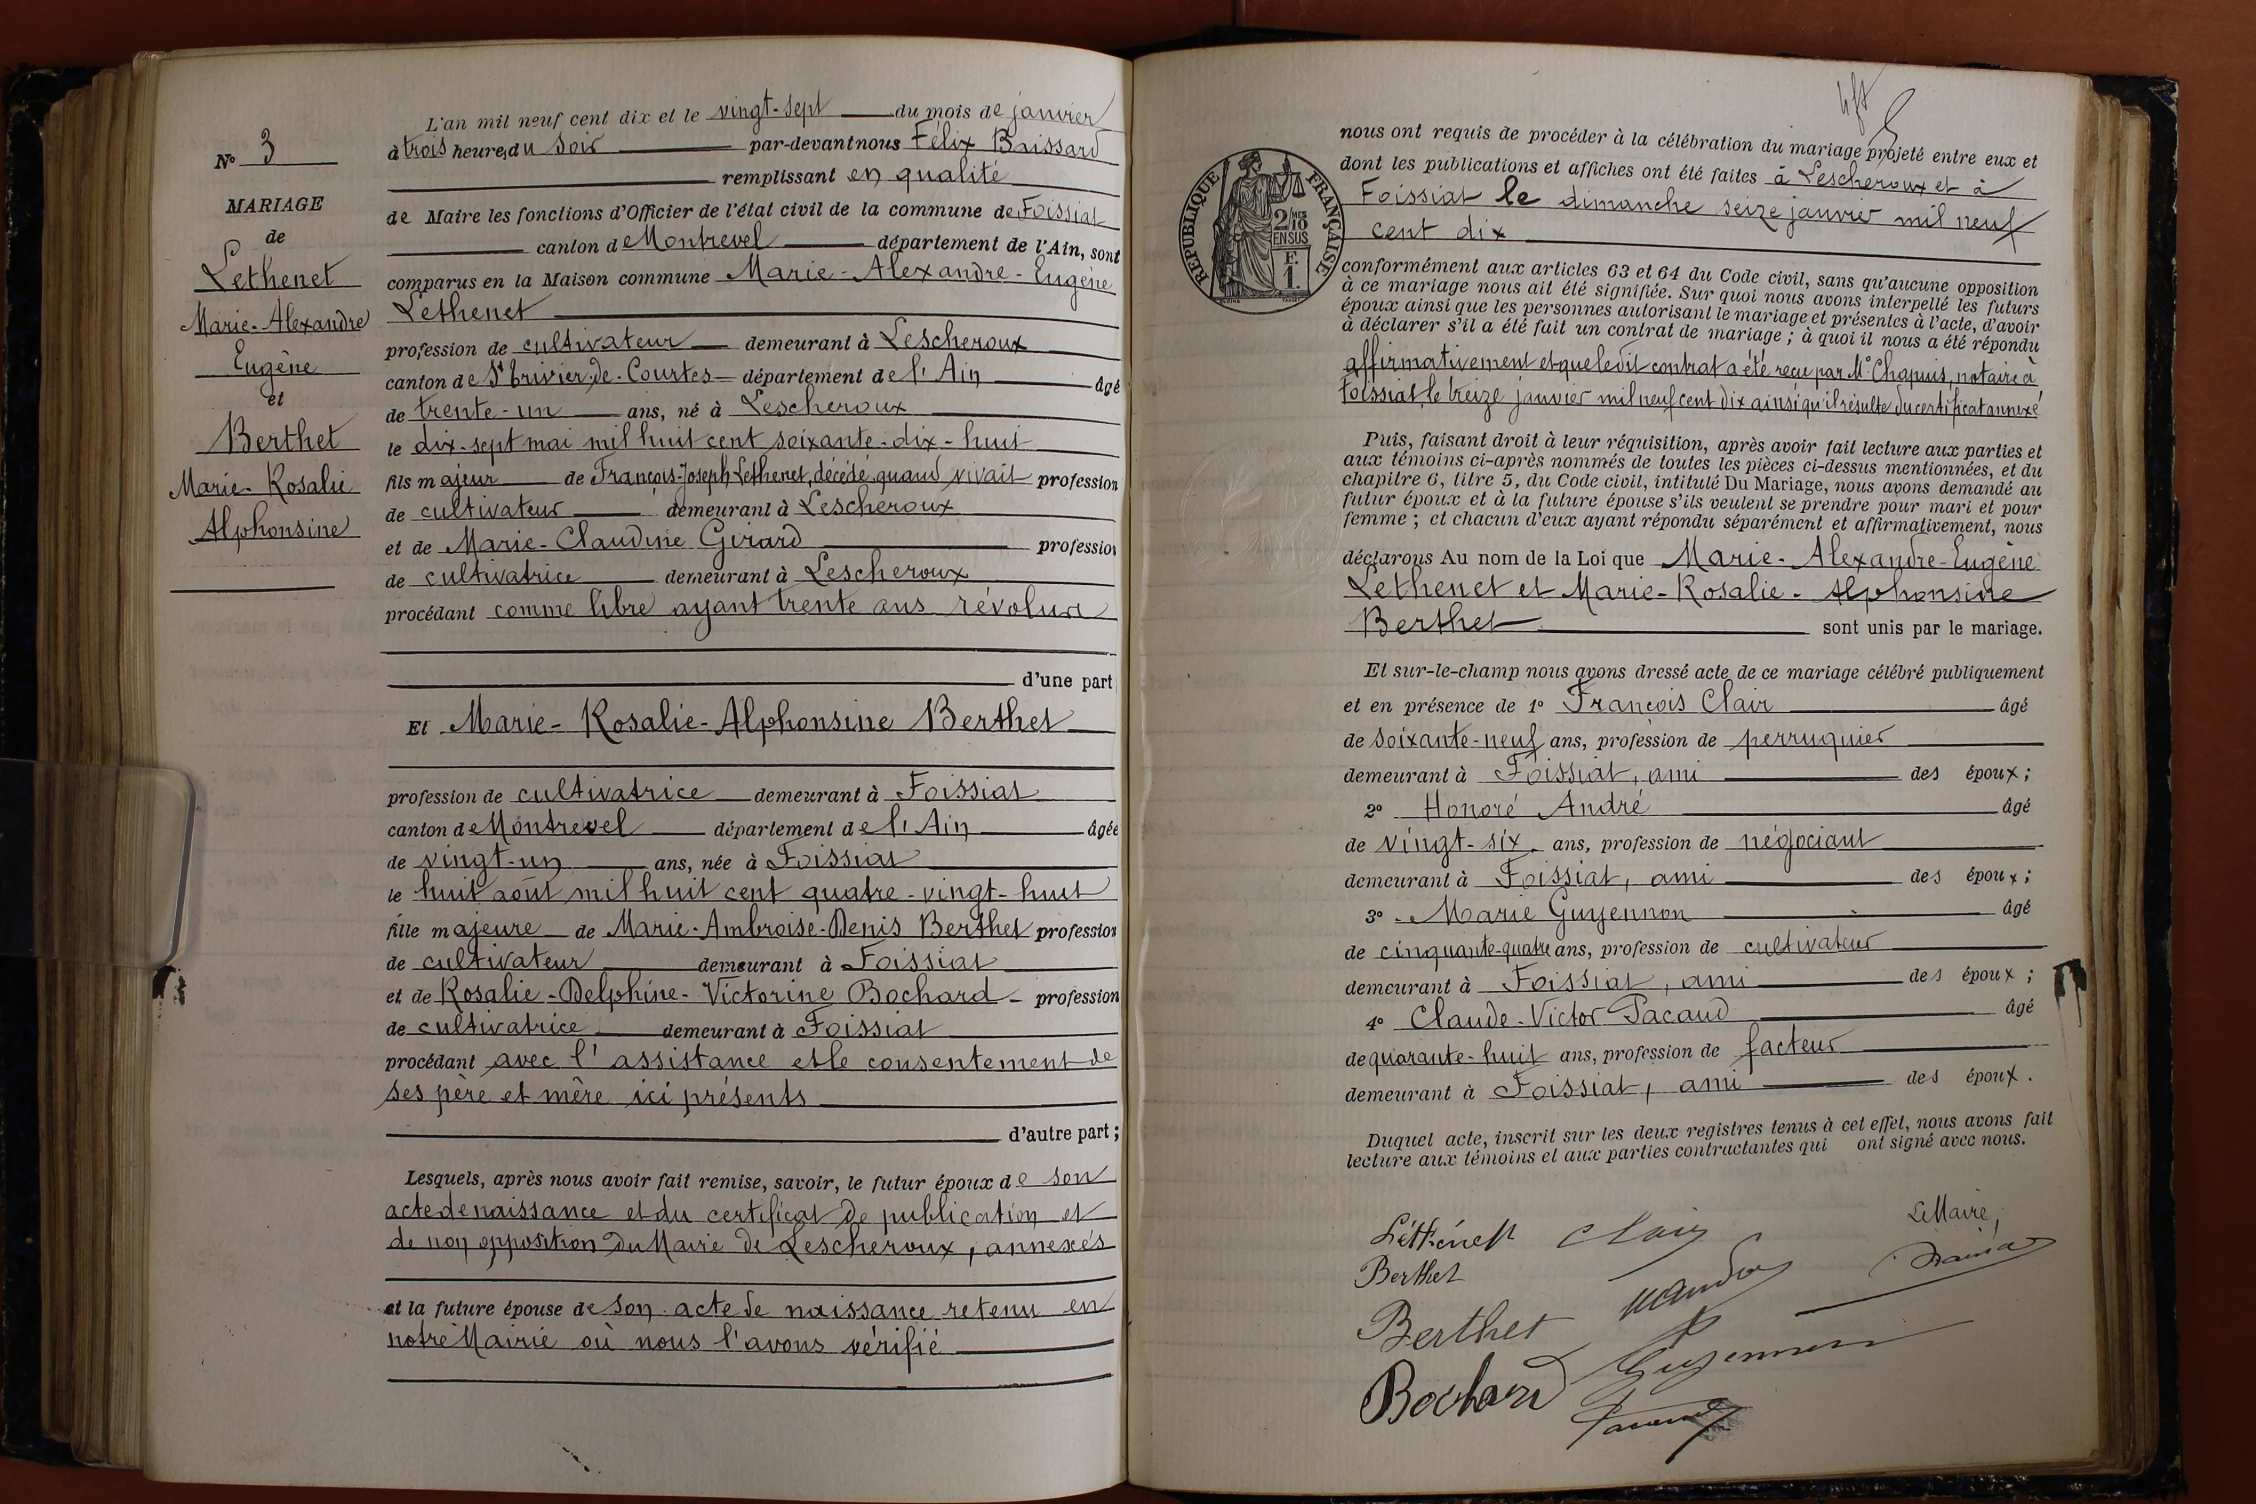 N° 3
MARIAGE
de
Lethenet
Marie-Alexandre
Eugène
et
Berthet
Marie-Rosalie
Alphonsine
L'an mil neuf cent dix et le vingt-sept du mois de janvier
à trois heures du soir par-devant nous Félix
remplissant en qualité
de Maire les fonctions d'Officier de l'état civil de la commune de Foissiat
canton de Montrevel département de l'Ain, sont
comparus en la Maison commune Marie-Alexandre-Eugène
Lethenet
profession de cultivateur demeurant à Lescheroux
canton de St Trivier-de-Courtes département de l'Ain âgé
de trente-un ans, né à Lescheroux
le dix-sept mai mil huit cent soixante-dix-huit
fils majeur de François-Joseph Lethenet, décédé, quand vivait profession
de cultivateur demeurant à Lescheroux
et de Marie-Claudine Girard profession
de cultivatrice demeurant à Lescheroux
procédant comme libre ayant trente ans révolus
d'une part
Et Marie-Rosalie-Alphonsine Berthet
profession de cultivatrice demeurant à Foissiat
canton de Montrevel département de l'Ain âgée
de vingt-un ans, née à Foissiat
le huit août mil huit cent quatre-vingt-huit
fille majeure de Marie-Ambroise-Denis Berthet profession
de cultivateur demeurant à Foissiat
et de Rosalie-Delphine-Victorine Bochard profession
de cultivatrice demeurant à Foissiat
procédant avec l'assistance et le consentement de
ses père et mère ici présents
d'autre part ;
Lesquels, après nous avoir fait remise, savoir, le futur époux de son
acte de naissance et du certificat de publication et
de non opposition du Maire de Lescheroux, annexés
et la future épouse de son acte de naissance retenu en
notre Mairie où nous l'avons vérifié
RÉPUBLIQUE FRANÇAISE
2/10 MES
EN SUS
F.
1.
nous ont requis de procéder à la célébration du mariage projeté entre eux et
dont les publications et affiches ont été faites à Lescheroux et à
Foissiat le dimanche seize janvier mil neuf
cent dix
conformément aux articles 63 et 64 du Code civil, sans qu'aucune opposition
à ce mariage nous ait été signifiée. Sur quoi nous avons interpellé les futurs
époux ainsi que les personnes autorisant le mariage et présentes à l'acte, d'avoir
à déclarer s'il a été fait un contrat de mariage ; à quoi il nous a été répondu
affirmativement et que ledit contrat a été reçu par Me Chapuis, notaire à
Foissiat, le treize janvier mil neuf cent dix ainsi qu'il résulte du certificat annexé
Puis, faisant droit à leur réquisition, après avoir fait lecture aux parties et
aux témoins ci-après nommés de toutes les pièces ci-dessus mentionnées, et du
chapitre 6, titre 5, du Code civil, intitulé Du Mariage, nous avons demandé au
futur époux et à la future épouse s'ils veulent se prendre pour mari et pour
femme ; et chacun d'eux ayant répondu séparément et affirmativement, nous
déclarons Au nom de la Loi que Marie-Alexandre-Eugène
Lethenet et Marie-Rosalie-Alphonsine
Berthet sont unis par le mariage.
Et sur-le-champ nous avons dressé acte de ce mariage célébré publiquement
et en présence de 1° François Clair âgé
de soixante-neuf ans, profession de perruquier
demeurant à Foissiat, ami des époux ;
2° Honoré André âgé
de vingt-six ans, profession de négociant
demeurant à Foissiat, ami des époux ;
3° Marie Guyennon âgé
de cinquante-quatre ans, profession de cultivateur
demeurant à Foissiat, ami des époux ;
4° Claude-Victor Pacaud âgé
de quarante-huit ans, profession de facteur
demeurant à Foissiat, ami des époux.
Duquel acte, inscrit sur les deux registres tenus à cet effet, nous avons fait
lecture aux témoins et aux parties contractantes qui ont signé avec nous.
Léthénet Clair Le Maire,
Berthet
Berthet
Guyennon
Bochard
Pacaud